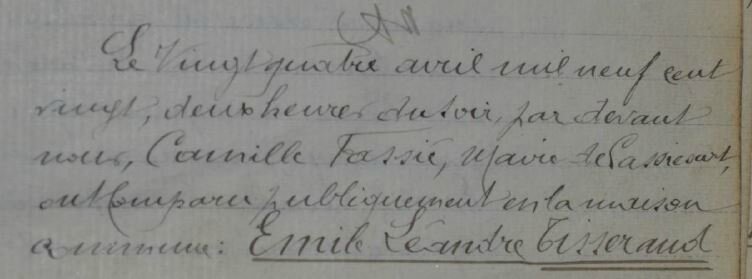 Le Vingt quatre avril mil neuf cent
vingt, deux heures du soir, par devant
nous, Camille Fassié, Maire de Lassicourt,
ont Comparu publiquement en la maison
commune: Emile Léandre Tisserand